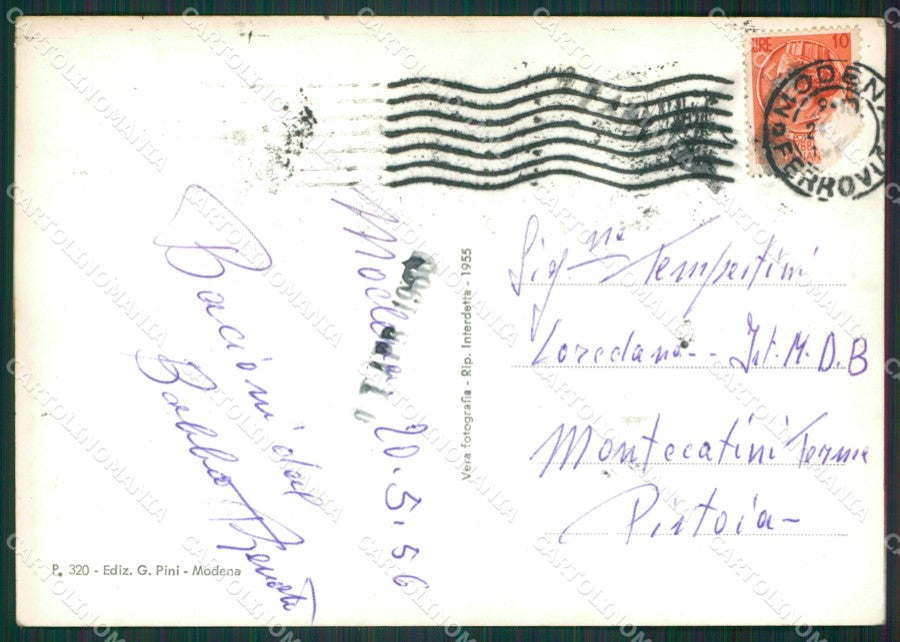 LIRE 10
MODENA
FERROVIA
Modena 20.5.56
Bacioni dal
Babbo Renato
Vera fotografia - Rip. Interdetta - 1955
Sig.na Tempestini
Loredana - Ist. M. D. B
Montecatini Terme
Pistoia -
P. 320 - Ediz. G. Pini - Modena
CARTOLINOMANIA